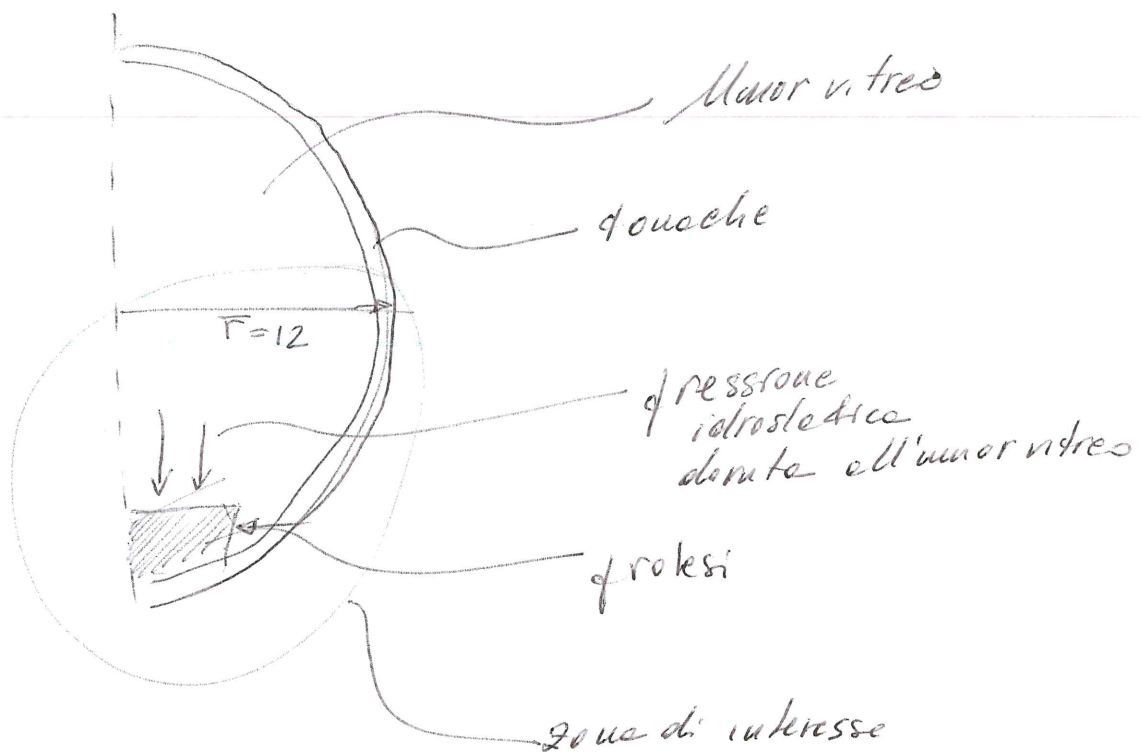 Umor vitreo
r=12
pressione
idrostatica
dovuta all'umor vitreo
protesi
zona di interesse